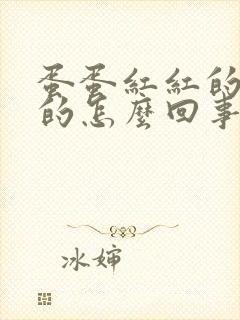 蛋蛋紅紅的
的怎麼回事
冰嬸